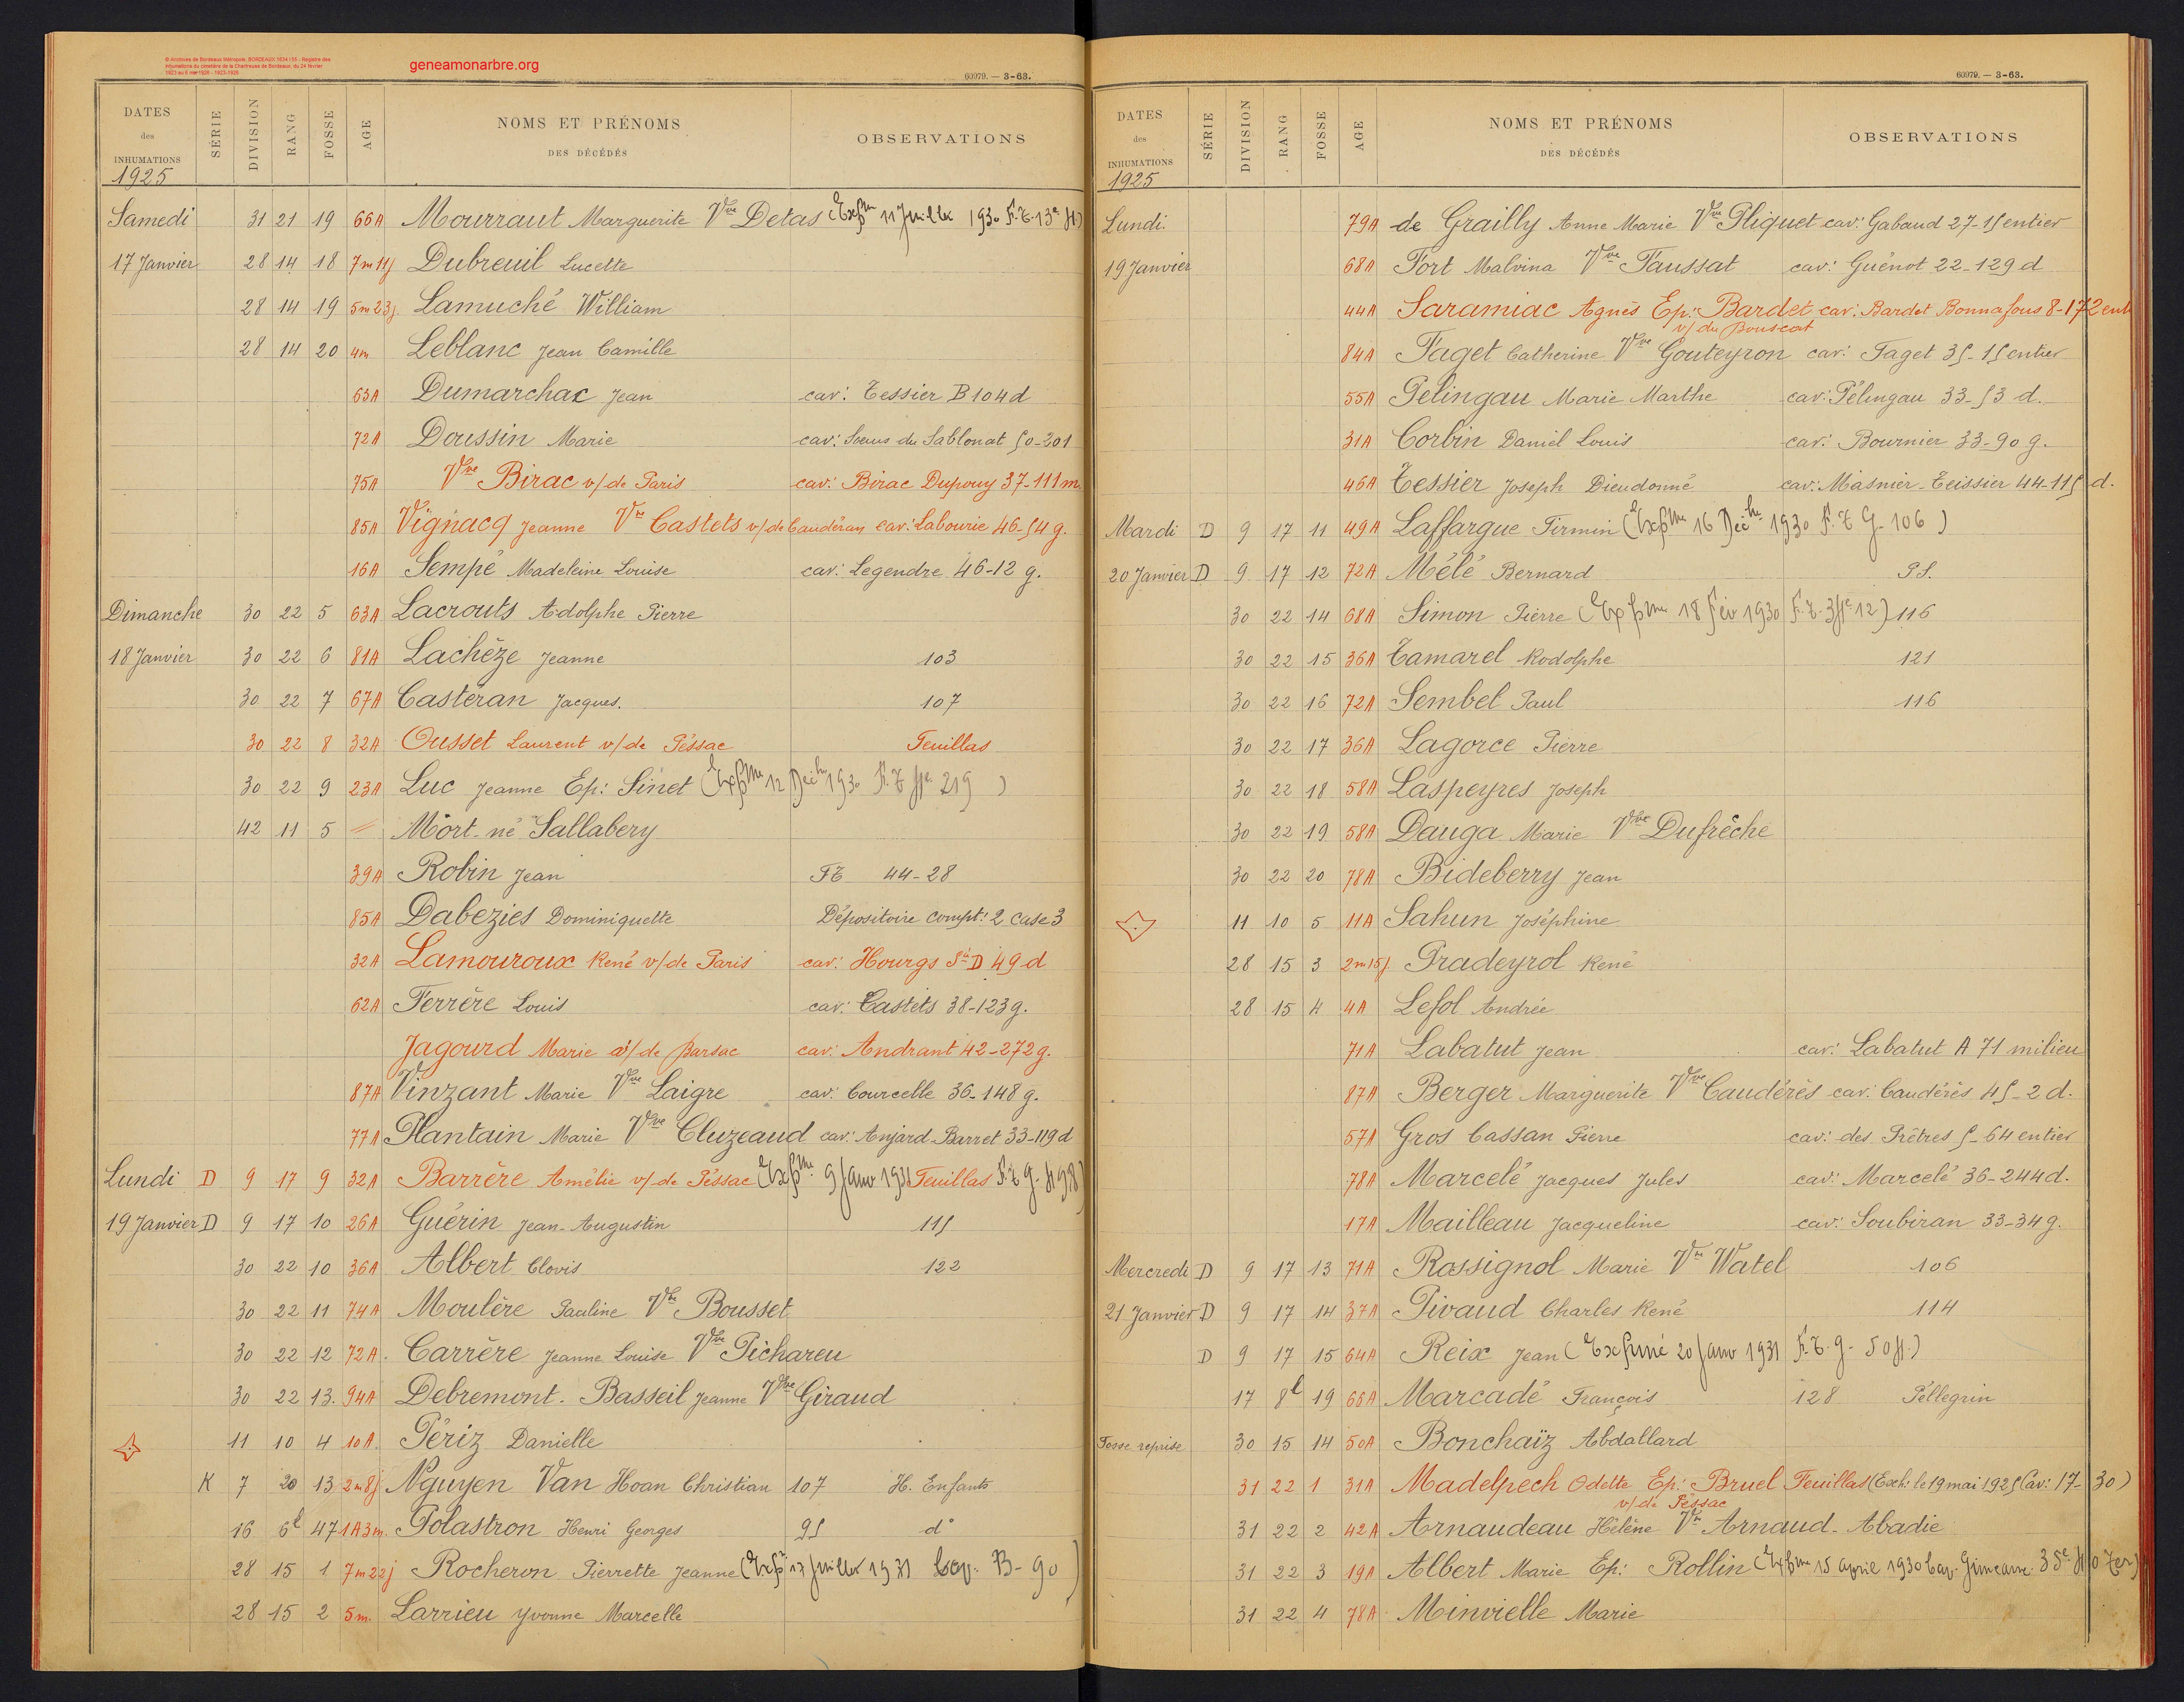 © Archives de Bordeaux Métropole, BORDEAUX 1634 I 55 - Registre des
inhumations du cimetière de la Chartreuse de Bordeaux, du 24 février
1923 au 6 mai 1926 - 1923-1926
geneamonarbre.org
60979. — 3-63.
DATES des INHUMATIONS SÉRIE DIVISION RANG FOSSE AGE NOMS ET PRÉNOMS DES DÉCÉDÉS OBSERVATIONS
1925
Samedi 31 21 19 66A Mourraut Marguerite Vve Detas (Exhme 11 Juillet 1930 F.T. 13e
17 Janvier 28 14 18 7m11j Dubreuil Lucette
28 14 19 5m23j Lamuché William
28 14 20 4m Leblanc Jean Camille
63A Dumarchac Jean cav: Tessier B 104 d
72A Doussin Marie cav: Sœurs du Sablonat 50-201
75A Vve Birac v/ de Paris cav: Birac Dupouy 37-111 m.
85A Vignacq Jeanne Vve Castets v/ de Caudéran cav: Labourie 46-54 g.
16A Sempé Madeleine Louise cav: Legendre 46-12 g.
Dimanche 30 22 5 63A Lacrouts Adolphe Pierre
18 Janvier 30 22 6 81A Lachèze Jeanne 103
30 22 7 67A Castéran Jacques. 107
30 22 8 32A Ousset Laurent v/ de Péssac Feuillas
30 22 9 23A Luc Jeanne Ep: Sinet (Exhme 12 Décbre 1930 F.T. 219)
42 11 5 Mort-né Sallabery
39A Robin Jean FT 44-28
85A Dabezies Dominiquette Dépositoire compt: 2 case 3
32A Lamouroux René v/ de Paris cav: Hourgs Sie D 49 d
62A Ferrère Louis cav: Castets 38-123 g.
Jagourd Marie v/ de Barsac cav: Andrant 42-272 g.
87A Vinzant Marie Vve Laigre cav: Courcelle 36-148 g.
77A Plantain Marie Vve Cluzeaud cav: Anjard-Barret 33-119 d
Lundi D 9 17 9 32A Barrère Amélie v/ de Péssac (Exhme 9 Janv 1931 Feuillas F.T. g. 98)
19 Janvier D 9 17 10 26A Guérin Jean-Augustin 115
30 22 10 36A Albert Clovis 122
30 22 11 74A Moulère Pauline Vve Bousset
30 22 12 72A. Carrère Jeanne Louise Vve Pichareu
30 22 13. 94A Debremont-Basseil Jeanne Vve Giraud
11 10 4 10A. Périz Danielle
K 7 20 13 2m8j Nguyen Van Hoan Christian 107 H. Enfants
16 6l 47 1A3m. Polastron Henri Georges 95 d°
28 15 1 7m22j Rocheron Pierrette Jeanne (Exh Juillet 1931 B-90)
28 15 2 5m. Larrieu Yvonne Marcelle
60979. — 3-63.
DATES des INHUMATIONS SÉRIE DIVISION RANG FOSSE AGE NOMS ET PRÉNOMS DES DÉCÉDÉS OBSERVATIONS
1925
Lundi. 79A de Grailly Anne Marie Vve Pliquet cav: Gabaud 27-15 entier
19 Janvier 68A Fort Malvina Vve Faussat cav: Guénot 22-129 d
44A Saramiac Agnès Ep: Bardet cav: Bardet Bonnafous 8-172 ent
v/ du Bouscat
84A Faget Catherine Vve Gouteyron cav: Faget 35-15 entier
55A Pelingau Marie Marthe cav: Pélingau 33-53 d.
31A Corbin Daniel Louis cav: Bournier 33-90 g.
46A Tessier Joseph Dieudonné cav: Masnier-Teissier 44-115 d.
Mardi D 9 17 11 49A Laffargue Firmin (Exhme 16 Décbre 1930 F.T. G. 106)
20 Janvier D 9 17 12 72A Mélé Bernard P.S.
30 22 14 68A Simon Pierre (Exhme 18 Fév 1930 F.T. 12) 116
30 22 15 36A Tamarel Rodolphe 121
30 22 16 72A Sembel Paul 116
30 22 17 36A Lagorce Pierre
30 22 18 58A Laspeyres Joseph
30 22 19 58A Dauga Marie Vve Dufrêche
30 22 20 78A Bideberry Jean
11 10 5 11A Sahun Joséphine
28 15 3 2m15j. Pradeyrol René
28 15 4 4A Lefol Andrée
71A Labatut Jean cav: Labatut A 71 milieu
87A Berger Marguerite Vve Caudérès cav: Caudérès 45-2 d.
57A Gros Cassan Pierre cav: des Prêtres 5-64 entier
78A Marcelé Jacques Jules cav: Marcelé 36-244 d.
17A Mailleau Jacqueline cav: Soubiran 33-34 g.
Mercredi D 9 17 13 71A Rossignol Marie Vve Watel 106
21 Janvier D 9 17 14 37A Pivaud Charles René 114
D 9 17 15 64A Reix Jean (Exhumé 20 Janv 1931 F.T. g. 50)
17 8l 19 66A Marcadé François 128 Péllegrin
Fosse reprise 30 15 14 50A Bonchaïz Abdallard
31 22 1 31A Madelpech Odette Ep: Bruel Feuillas (Exh: le 19 mai 1925 Cav: 17-30)
v/ de Péssac
31 22 2 42A Arnaudeau Hélène Vve Arnaud-Abadie
31 22 3 19A Albert Marie Ep: Rollin (Exhme 15 avril 1930
31 22 4 78A Minvielle Marie